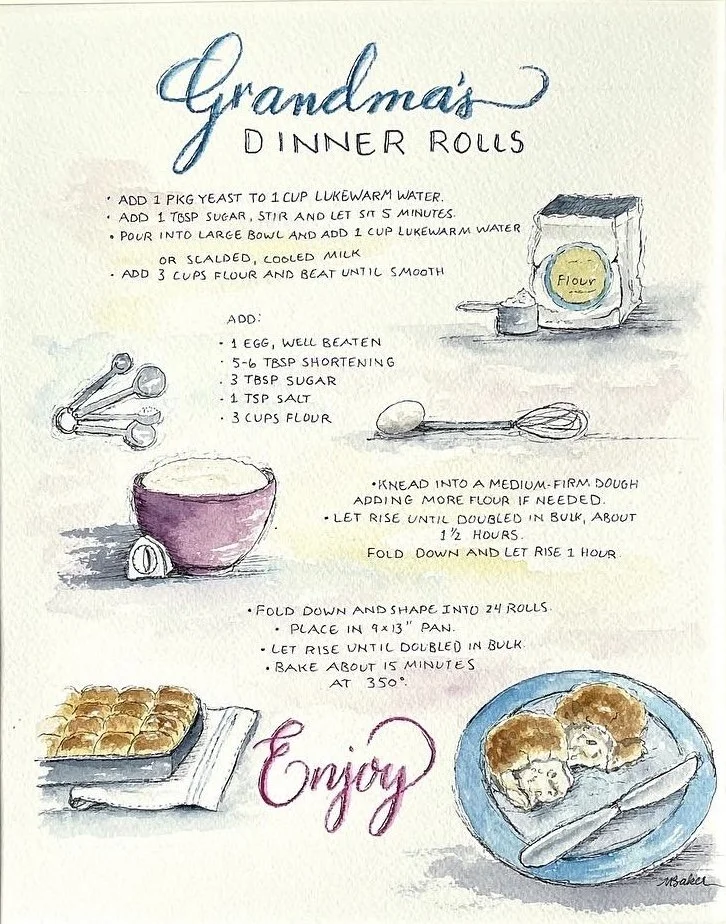 Grandma's
DINNER ROLLS
• ADD 1 PKG YEAST TO 1 CUP LUKEWARM WATER.
• ADD 1 TBSP SUGAR, STIR AND LET SIT 5 MINUTES.
• POUR INTO LARGE BOWL AND ADD 1 CUP LUKEWARM WATER
OR SCALDED, COOLED MILK
• ADD 3 CUPS FLOUR AND BEAT UNTIL SMOOTH
Flour
ADD:
• 1 EGG, WELL BEATEN
• 5-6 TBSP SHORTENING
• 3 TBSP SUGAR
• 1 TSP SALT
• 3 CUPS FLOUR
• KNEAD INTO A MEDIUM-FIRM DOUGH
ADDING MORE FLOUR IF NEEDED.
• LET RISE UNTIL DOUBLED IN BULK, ABOUT
1 1/2 HOURS.
FOLD DOWN AND LET RISE 1 HOUR.
• FOLD DOWN AND SHAPE INTO 24 ROLLS.
• PLACE IN 9x13" PAN.
• LET RISE UNTIL DOUBLED IN BULK.
• BAKE ABOUT 15 MINUTES
AT 350°.
Enjoy
MBaker